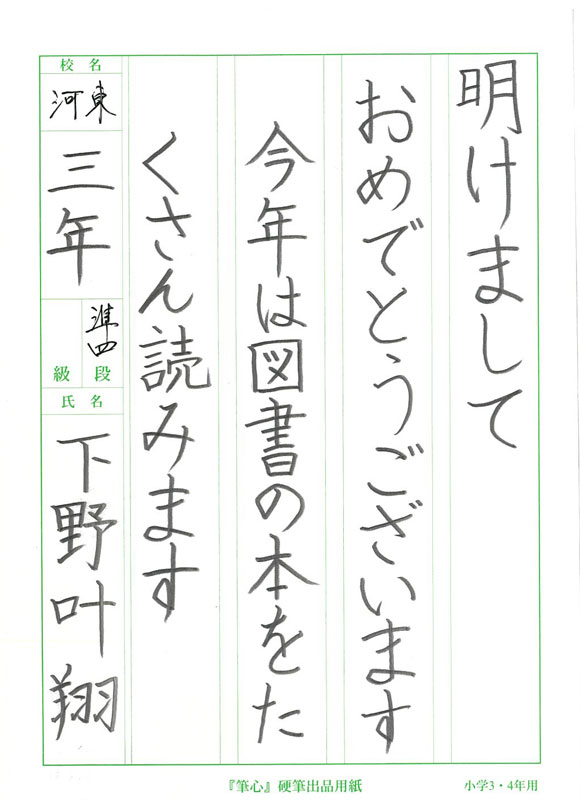 明けまして
おめでとうございます
今年は図書の本をた
くさん読みます
校名
河東
三年
準四
段
級
氏名
下野叶翔
『筆心』硬筆出品用紙
小学3・4年用